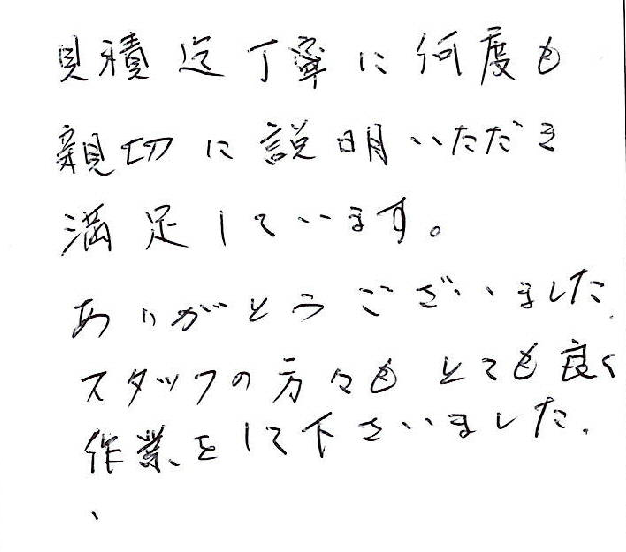 見積迄丁寧に何度も
親切に説明いただき
満足しています。
ありがとうございました.
スタッフの方々もとても良く
作業をして下さいました.
、